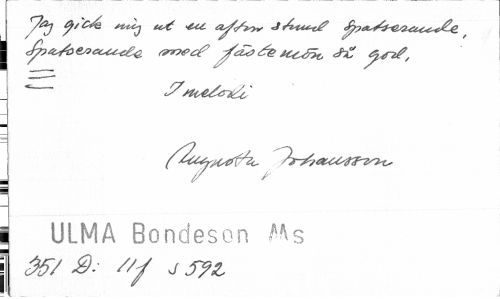 Jag gick mig ut en afton stund Spatserande,
Spatserande med fästemön så god,
1 melodi
Augusta Johansson
ULMA Bondeson Ms
351 D: 11 f s 592